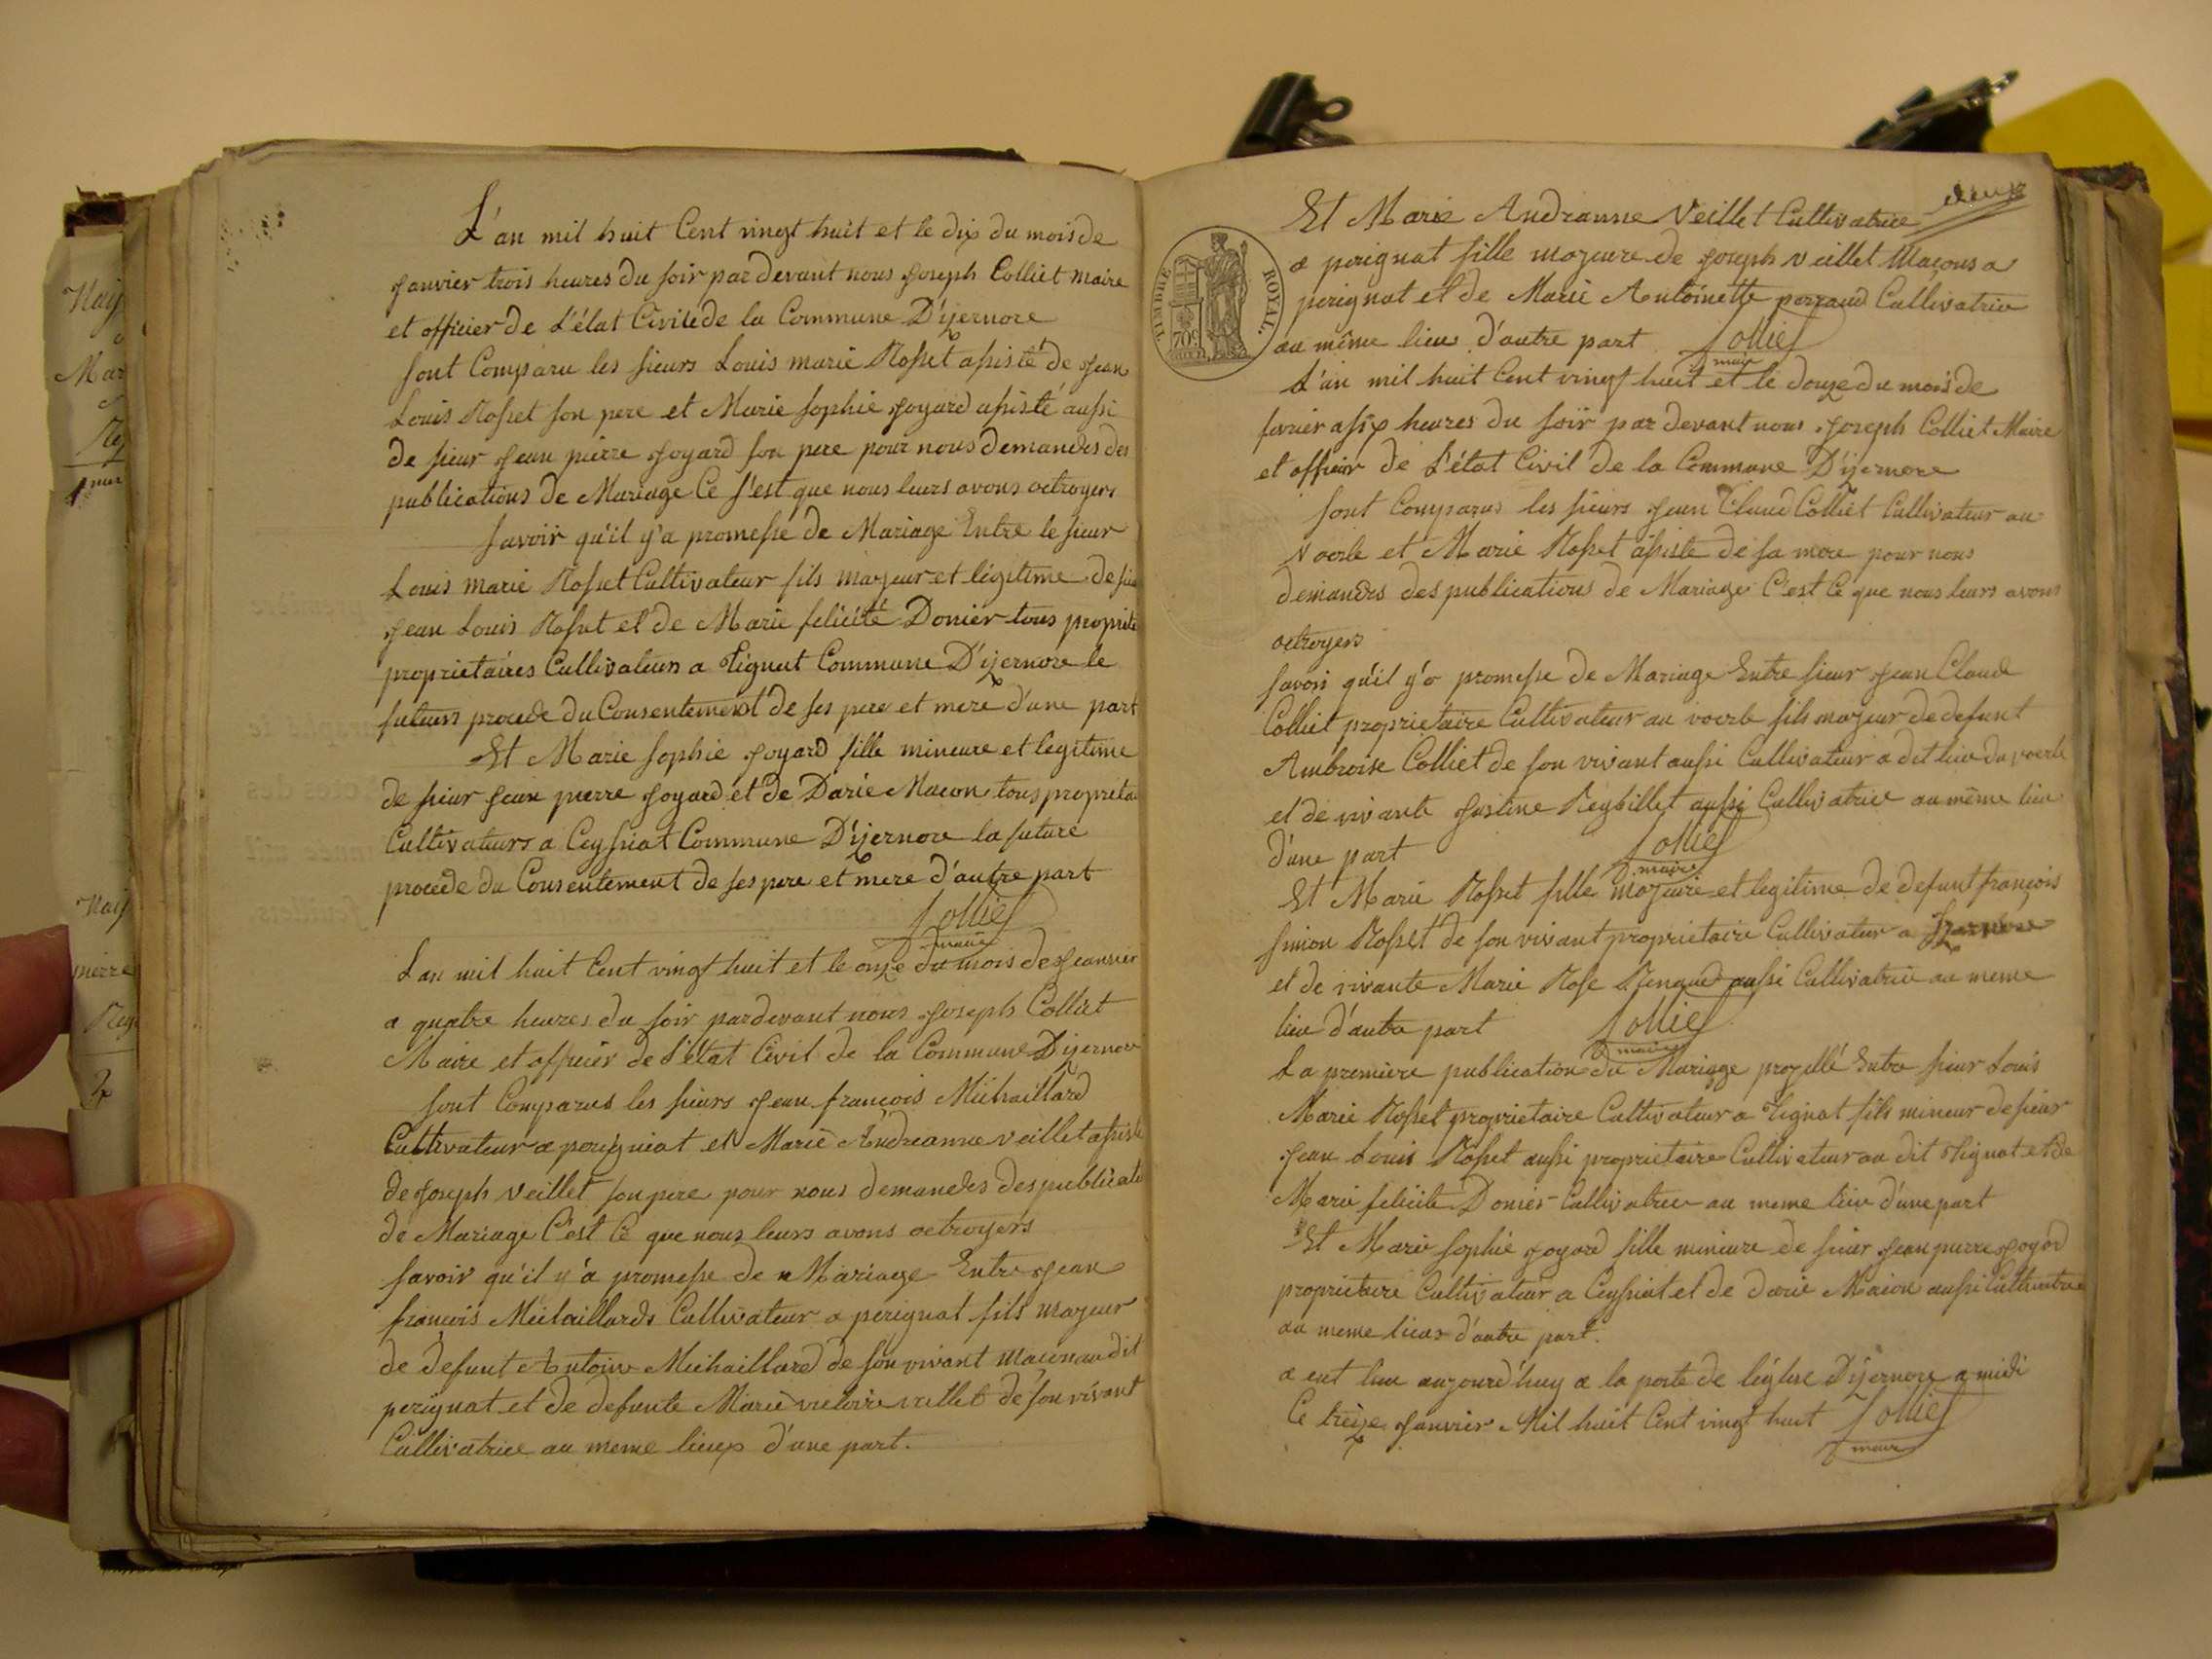 L'an mil huit Cent vingt huit et le dix du mois de
janvier trois heures du soir pardevant nous joseph Colliet maire
et officier de L'état Civile de la Commune D'ijernore
sont Comparu les sieurs Louis marie Rosset asisté de jean
Louis Rosset son pere et Marie sophie joyard asisté aussi
de sieur jean pierre joyard son pere pour nous demanders des
publications de Mariage Ce s'est que nous leurs avons octroyers
savoir qu'il y'a promesse de Mariage Entre le sieur
Louis marie Rosset Cultivateur fils majeur et légitime de sieur
jean Louis Rosset et de Marie felicité Donier tous propriéte
proprietaires Cultivateurs a Tignat Commune D'ijernore le
futeurs procede du Consentement de ses pere et mere d'une part
Et Marie sophie joyard fille mineure et legitime
de sieur jean pierre joyard et de Darie Macon tous proprieta
Cultivateurs a Ceyssiat Commune D'ijernore la future
procede du Consentement de ses pere et mere d'autre part
Colliet
maire
L'an mil huit Cent vingt huit et le onze du mois de jeanvier
a quatre heures du soir pardevant nous joseph Colliet
Maire et officier de L'état Civil de la Commune D'ijernore
sont Comparus les sieurs jean françois Michaillard
Cultivateur a perigniat et Marie Andreanne veillet asisté
de joseph veillet son pere pour nous demanders des publicati
de Mariage C'est Ce que nous leurs avons octroyers
savoir qu'il y'a promesse de Mariage Entre jean
françois Michaillards Cultivateur a perignat fils majeur
de defunt Antoine Michaillard de son vivant maçon audit
perignat et de defunte Marie victoire veillet de son vivant
Cultivatrice au meme lieux d'une part.
deux
TIMBRE ROYAL.
70c
Et Marie Andranne Veillet Cultivatrice
a perignat fille majeure de joseph veillet Maçons a
perignat et de Marie Antoinette perraud Cultivatrice
au même lieu d'autre part Colliet
maire
L'an mil huit Cent vingt huit et le douze du mois de
fevrier a six heures du soir par devant nous joseph Colliet Maire
et officier de L'état Civil de la Commune D'ijernore
sont Comparus les sieurs jean Claud Colliet Cultivateur au
Voerle et Marie Rosset asiste de sa mere pour nous
demanders des publications de Mariage C'est Ce que nous leurs avons
octroyers
savoir qu'il y'a promesse de Mariage Entre sieur jean Claude
Colliet proprietaire Cultivateur au voerle fils majeur de defunt
Ambroise Colliet de son vivant aussi Cultivateur a dit lieu du voerle
et de vivante justine Reybillet aussi Cultivatrice au même lieu
d'une part Colliet
maire
Et Marie Rosset fille majeure et legitime de defunt françois
simon Rosset de son vivant proprietaire Cultivateur a
et de vivante Marie Rose aussi Cultivatrice au meme
lieu d'autre part Colliet
maire
La premiere publication du Mariage projetté Entre sieur Louis
Marie Rosset proprietaire Cultivateur a Tignat fils mineur de sieur
jean Louis Rosset aussi proprietaire Cultivateur au dit Tignat et de
Marie felicite Donier Cultivatrice au meme lieu d'une part
Et Marie sophie joyard fille mineure de sieur jean pierre joyard
proprietaire Cultivateur a Ceyssiat et de darie Macon aussi Cultivatrice
au meme lieux d'autre part.
a eut lieu aujourd'huy a la porte de léglise D'ijernore a midi
Ce treize janvier Mil huit Cent vingt huit Colliet
maire